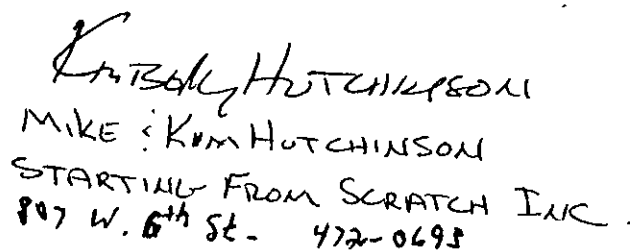 Kimberly Hutchinson
MIKE & KIM HUTCHINSON
STARTING FROM SCRATCH INC.
807 W. 6th St. 472-0693